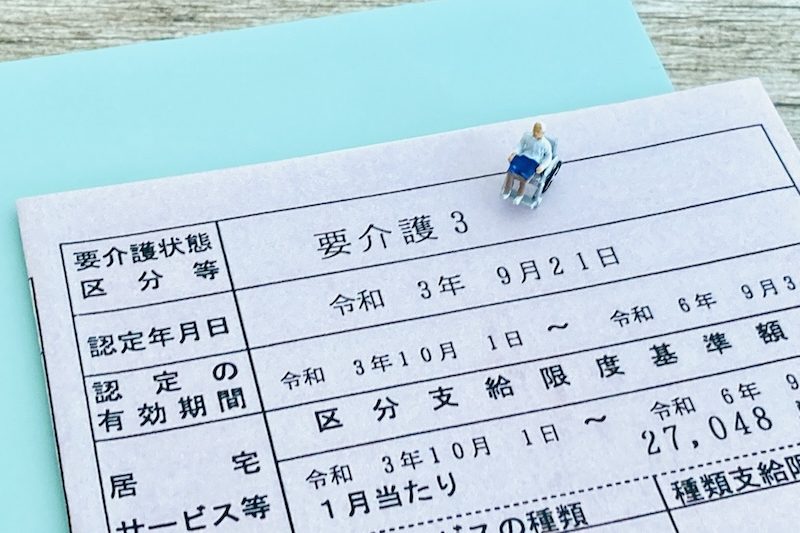 要介護状態
区分等
要介護3
認定年月日
令和 3年 9月21日
認定の
有効期間
令和 3年10月 1日 ～ 令和 6年 9月3
居宅
サービス等
区分支給限度基準額
令和 3年10月 1日 ～ 令和 6年 9
1月当たり
27,048
の種類
種類支給限